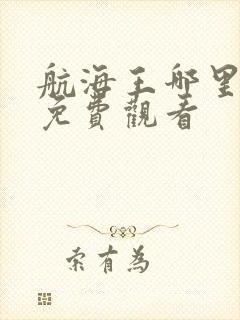 航海王哪里
免費觀看
索有為